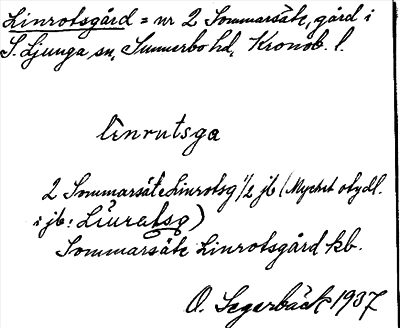 Linrotsgård = nr 2 Sommarsäte, gård i
S. Ljunga sn, Sunnerbo hd, Kronob. l.
linrutsga
2 Sommarsäte Linrotsg 1/2 jb (Mycket otydl.
i jb: Liuratsg)
Sommarsäte Linrotsgård kb.
O. Segerbäck 1937